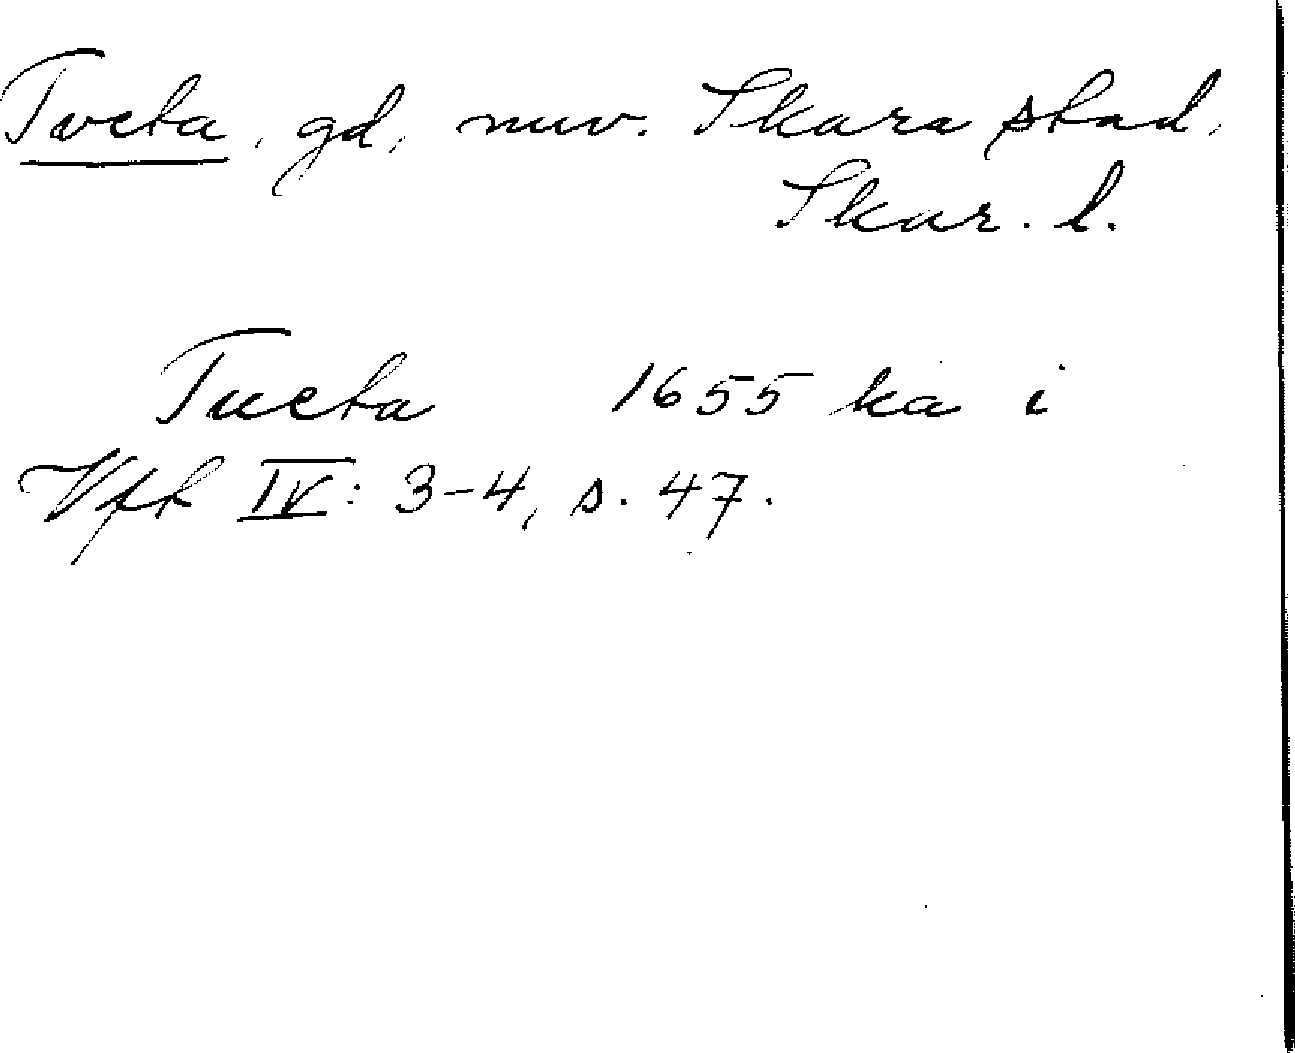 Tveta, gd, nuv. Skara stad,
Skar. l.
Tueta 1655 ka i
Vfk IV: 3-4, s. 47.